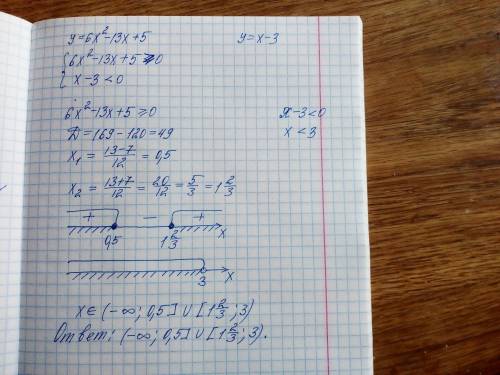 y=6x²-13x+5    y=x-3
{6x²-13x+5≥0
{x-3<0
6x²-13x+5≥0    x-3<0
Д=169-120=49    x<3
x₁ = (13-7)/12 = 0,5
x₂ = (13+7)/12 = 20/12 = 5/3 = 1 2/3
+ − +
0,5 1 2/3 x
3 x
x∈(-∞; 0,5]∪[1 2/3; 3)
Ответ: (-∞; 0,5]∪[1 2/3; 3).